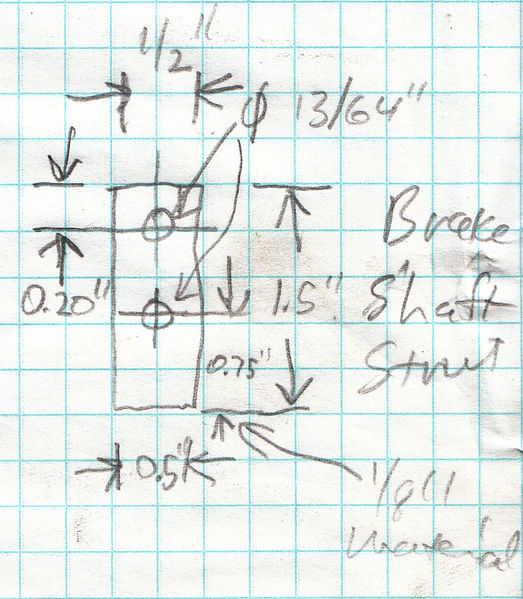 1/2"
ϕ 13/64"
Brake
Shaft
Strut
0.20"
1.5"
0.75"
0.5"
1/8"
material